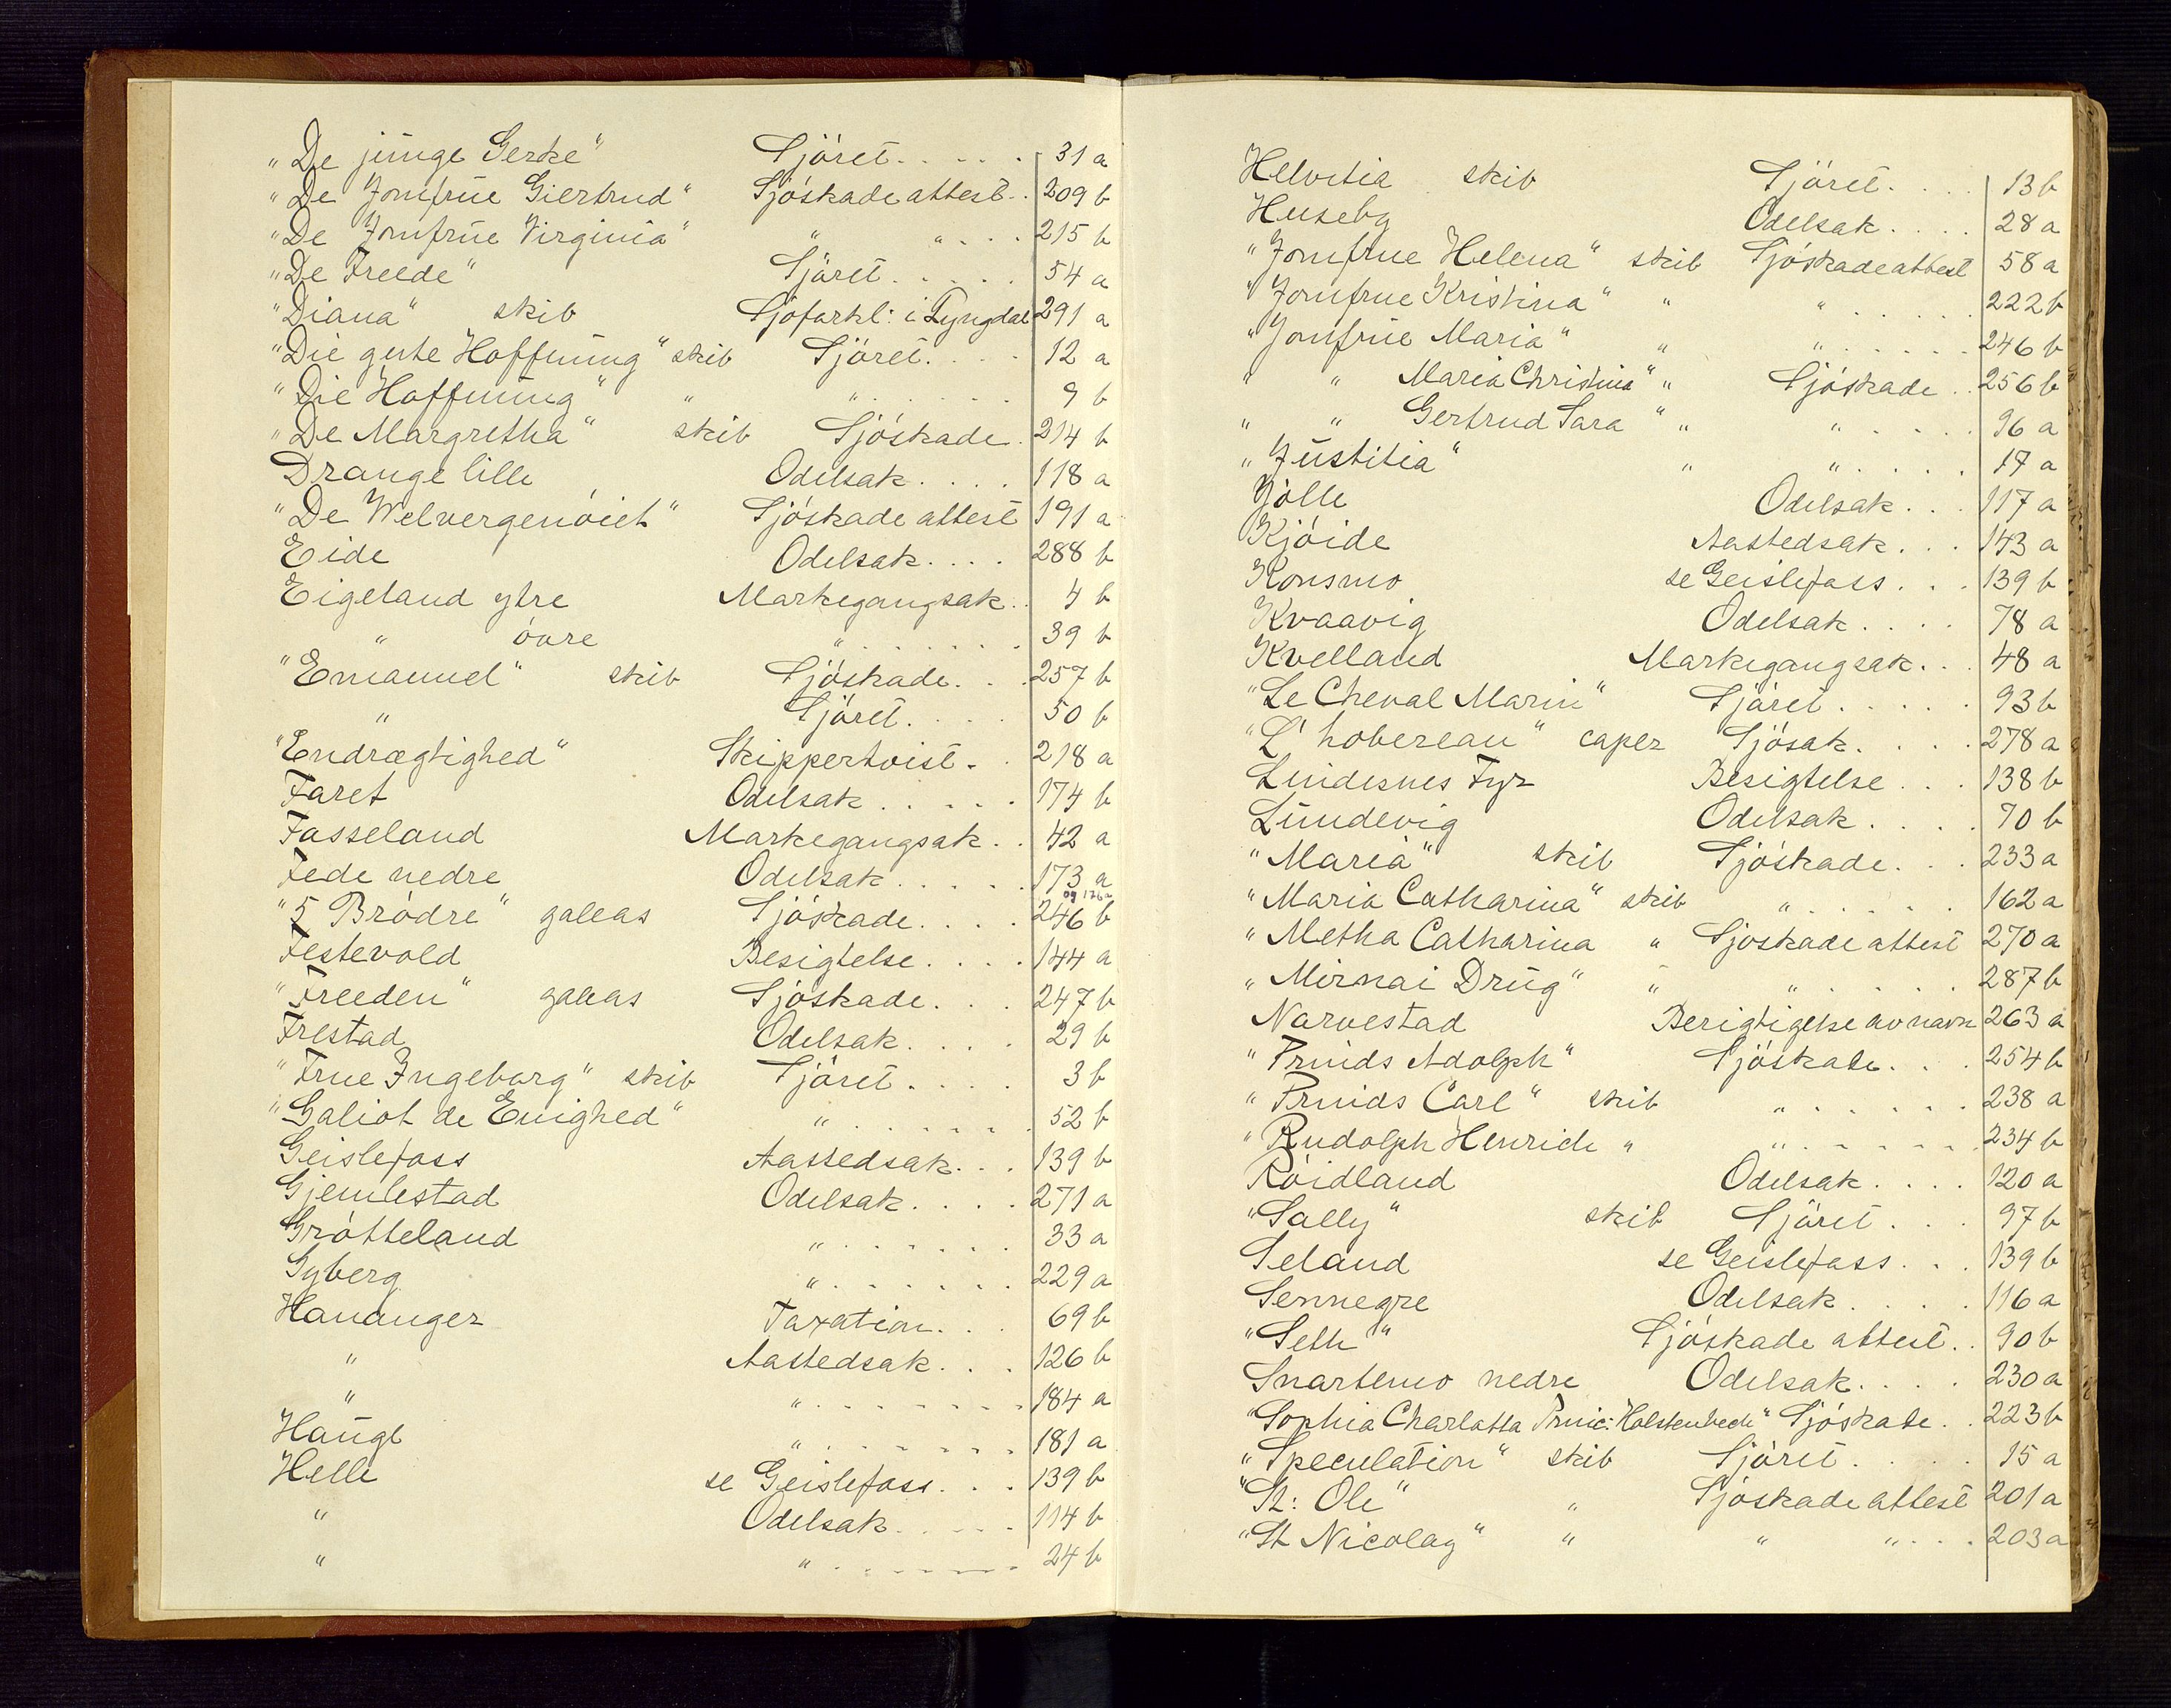 "De junge Gerke" Sjöret..... 31 a
"De Jomfrue Giertrud" Sjöskade attest.. 209 b
"De Jomfrue Virginia" " ".... 215 b
"De Freede" Sjöret..... 54 a
"Diana" skib Sjöforkl: i Lyngdal 291 a
"Die gute Hoffnung" skib Sjöret.... 12 a
"Die Hoffnung" " "...... 9 b
"De Margretha" skib Sjöskade. 214 b
Drange lille Odelsak.... 118 a
"De Welvergenöiet" Sjöskade attest 191 a
Eide Odelsak.... 288 b
Eigeland ytre Markegangsak.. 4 b
" övre "....... 39 b
"Emanuel" skib Sjöskade... 257 b
" Sjöret.... 50 b
"Endrægtighed" Skippertvist.. 218 a
Faret Odelsak..... 174 b
Fasseland Markegangsak.. 42 a
Fede nedre Odelsak..... 173 a
og 176 a
"5 Brödre" galeas Sjöskade.... 246 b
Festevold Besigtelse.... 144 a
"Freeden" galeas Sjöskade... 247 b
Frestad Odelsak.... 29 b
"Frue Ingeborg" skib Sjöret.... 3 b
"Galiot de Enighed" "....... 52 b
Geislefoss Aastedsak... 139 b
Gjemlestad Odelsak.... 271 a
Grötteland "...... 33 a
Gyberg "...... 229 a
Hananger Taxation... 69 b
" Aastedsak... 126 b
" "....... 184 a
Hauge "....... 181 a
Helle se Geislefoss... 139 b
" Odelsak.... 114 b
" "....... 24 b
Helvetia skib Sjöret.... 13 b
Huseby Odelsak.... 28 a
"Jomfrue Helena" skib Sjöskadeattest 58 a
"Jomfrue Kristina" " "...... 222 b
"Jomfrue Maria" " "...... 246 b
" " Maria Christina" " Sjöskade.. 256 b
" " Gertrud Sara" " "..... 96 a
"Justitia" " "..... 17 a
Jölle Odelsak... 117 a
Kjöide Aastedsak... 143 a
Konsmo se Geislefoss... 139 b
Kvaavig Odelsak.... 78 a
Kvelland Markegangsak... 48 a
"Le Cheval Marin" Sjöret..... 93 b
"L'hobereau" caper Sjösak.... 278 a
Lindesnes Fyr Besigtelse... 138 b
Lundevig Odelsak.... 70 b
"Maria" skib Sjöskade... 233 a
"Maria Catharina" skib "..... 162 a
"Metha Catharina " Sjöskade attest 270 a
"Mirnai Drug" " "..... 287 b
Narvestad Berigtigelse av navn 263 a
"Prinds Adolph" Sjöskade... 254 b
"Prinds Carl" skib "...... 238 a
"Rudolph Henrich " "...... 234 b
Röidland Odelsak.... 120 a
"Sally" skib Sjöret... 97 b
Seland se Geislefoss... 139 b
Sennegre Odelsak.... 116 a
"Seth" Sjöskade attest.. 90 b
Snartemo nedre Odelsak.... 230 a
"Sophia Charlotta Princ: Holstenbeck" Sjöskade.. 223 b
"Speculation" skib Sjöret.... 15 a
"St: Ole" " Sjöskade attest 201 a
"St Nicolay" " " ".... 203 a